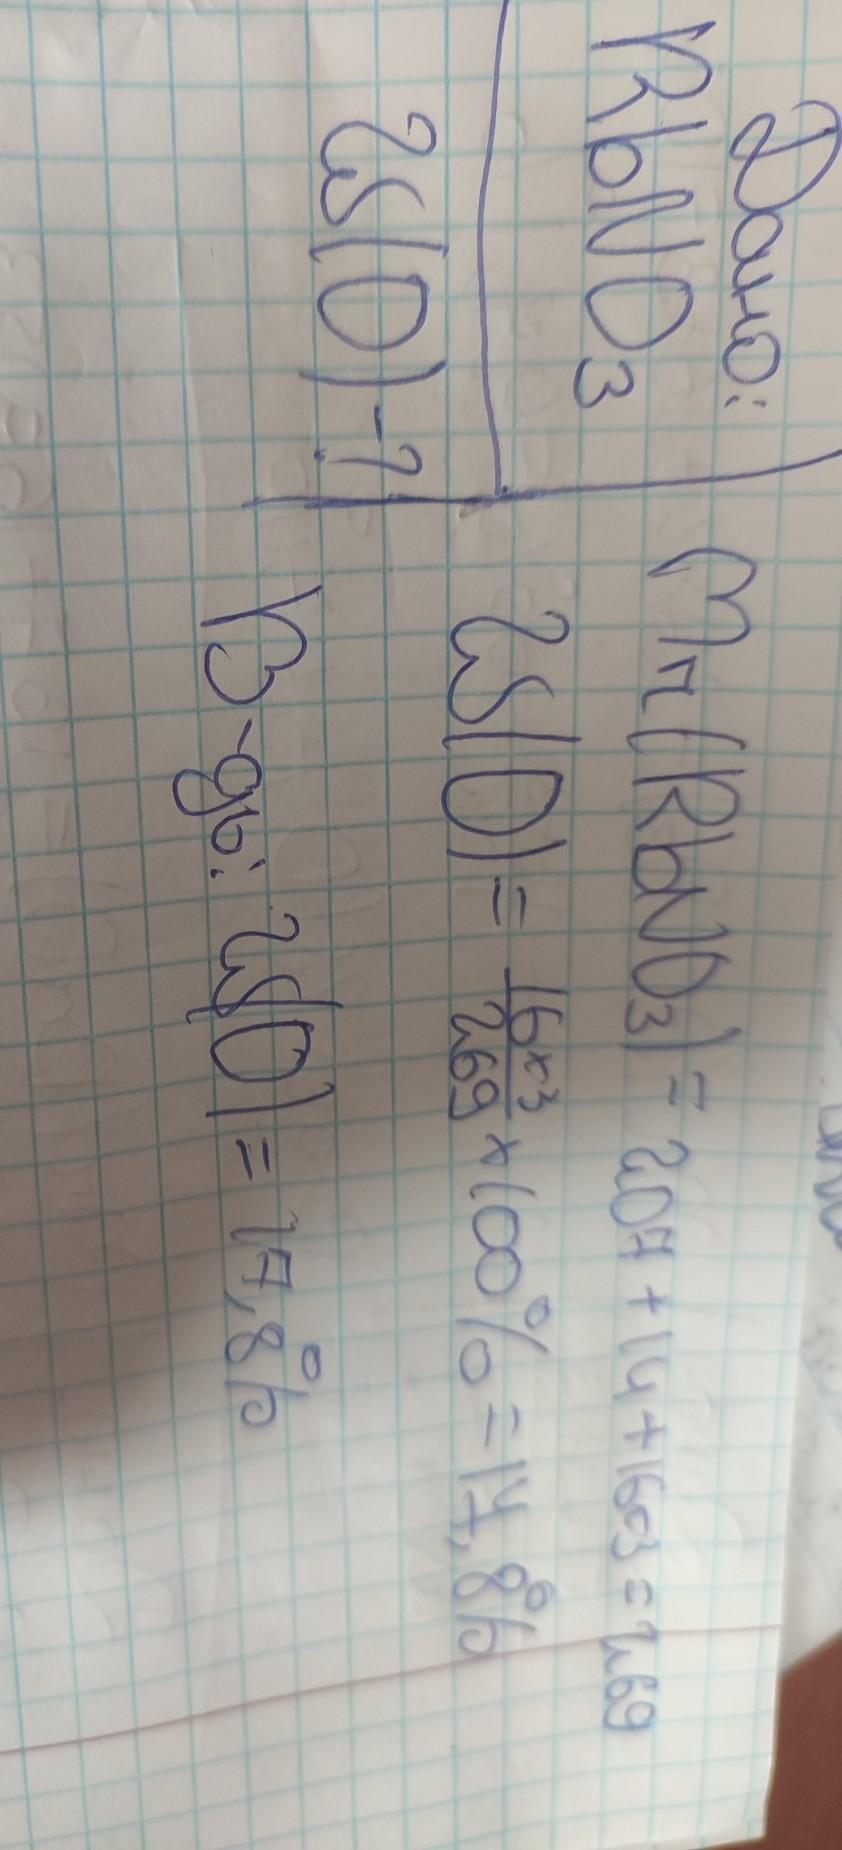 Дано:
RbNO3
W(O)-?
Mr(RbNO3) = 207+14+16·3=269
W(O) = 16×3/269 ×100% = 17,8%
В-дь: W(O) = 17,8%